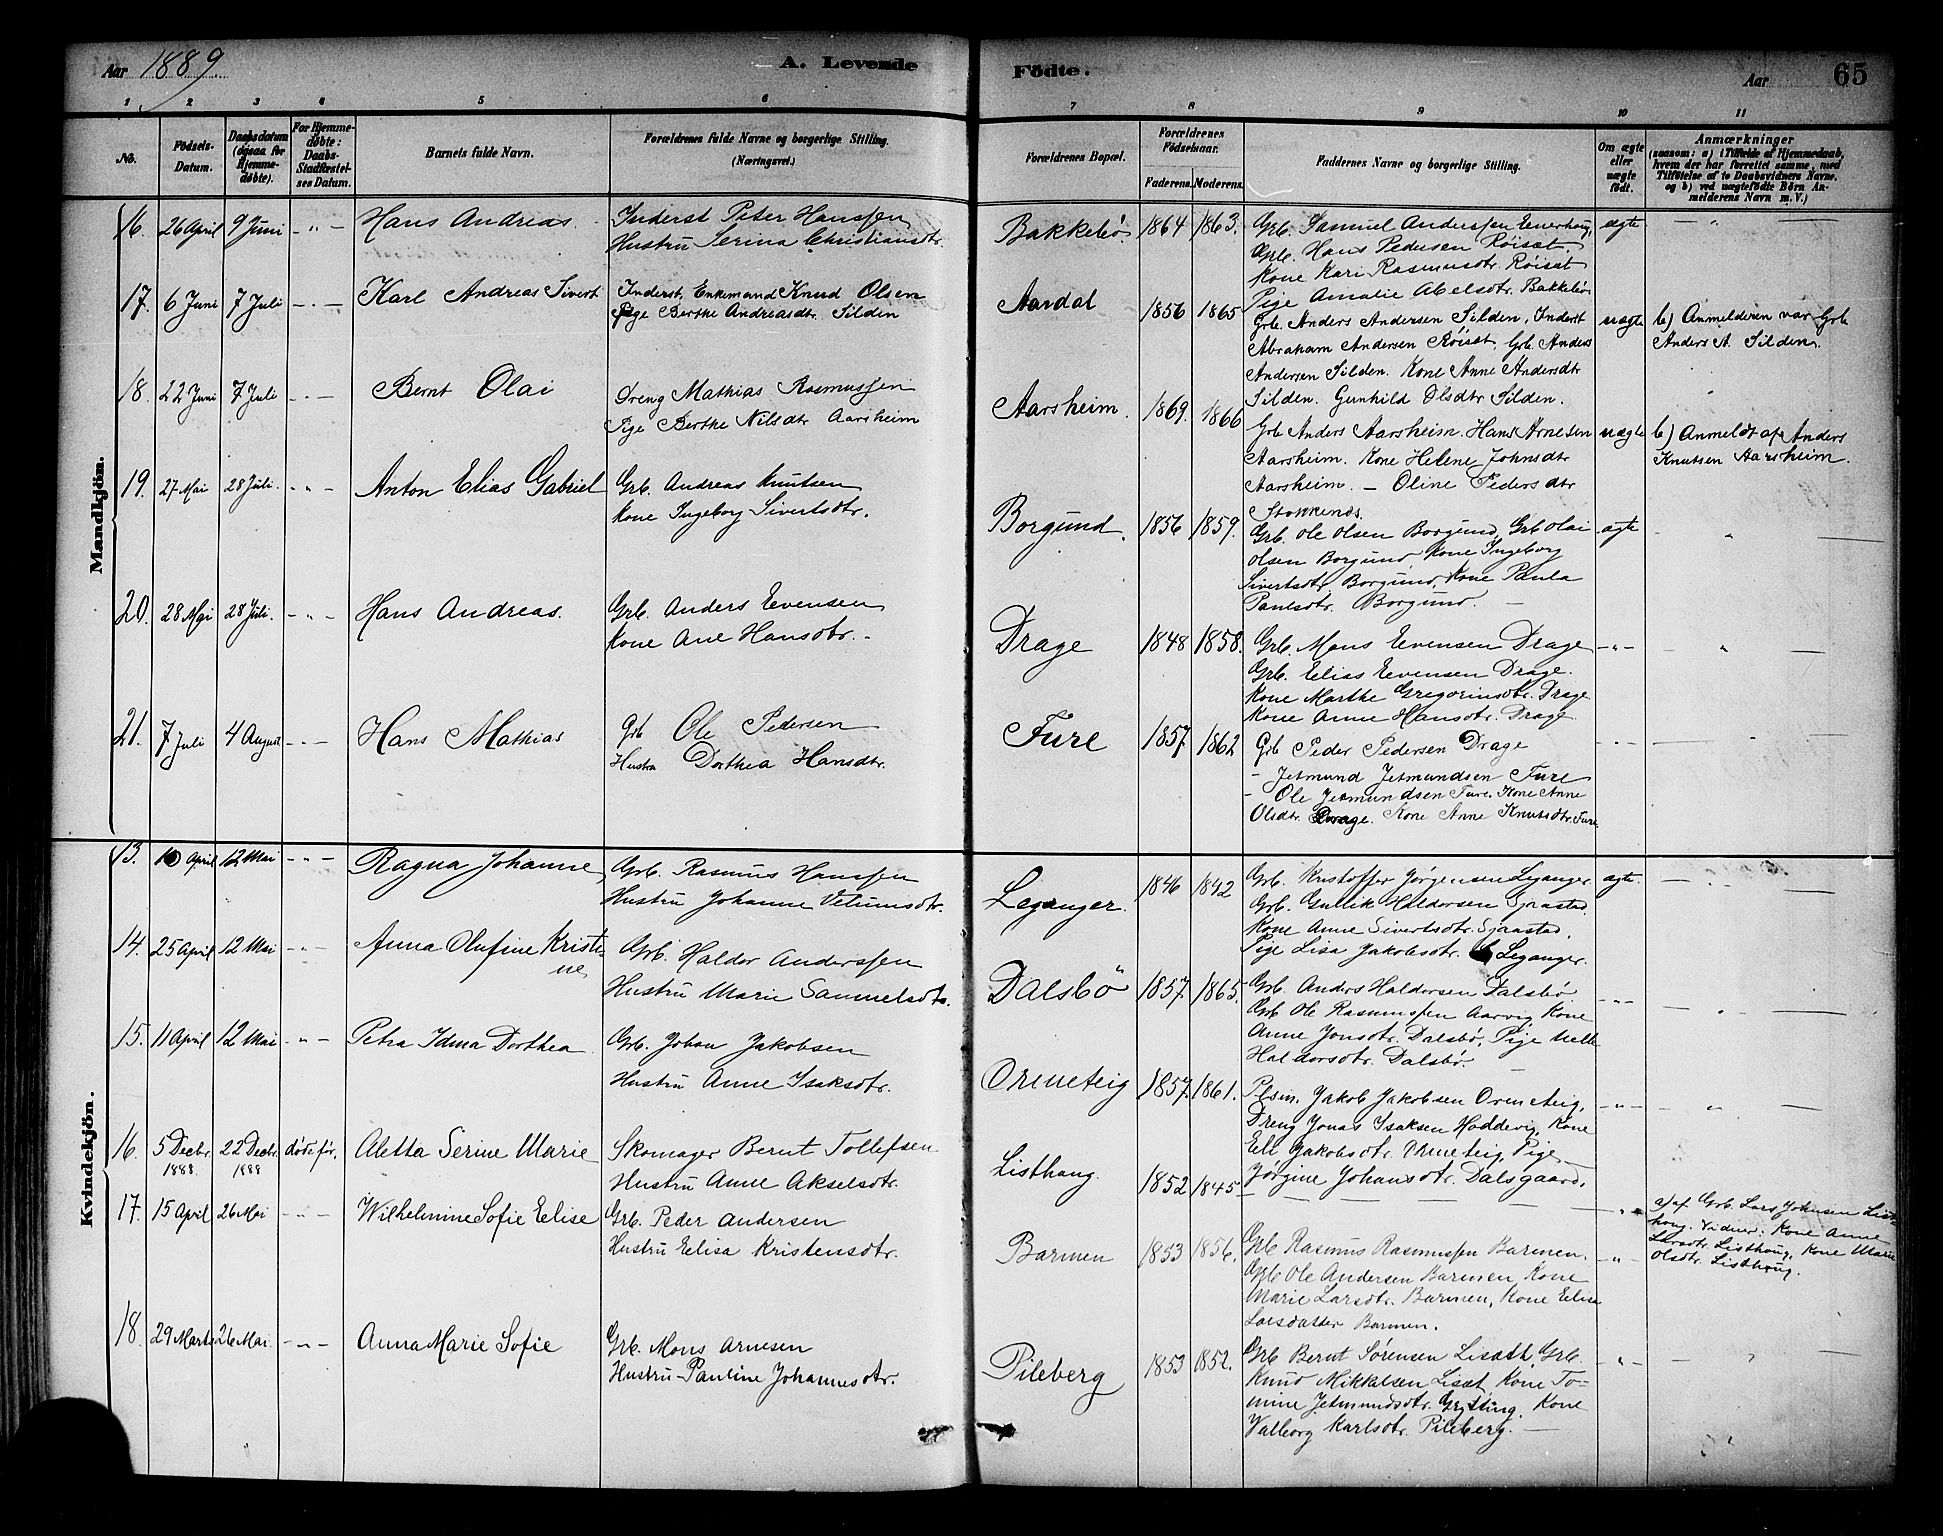 Aar 1889.
A. Levende
Födte.
Aar
65
1
2
3
4
5
6
7
8
9
10
11
No.
Födsels-
Datum.
Daabsdatum
(ogsaa for
Hjemme-
døbte).
For Hjemme-
døbte:
Daabs-
Stadfæstel-
ses Datum.
Barnets fulde Navn.
Forældrenes fulde Navne og borgerlige Stilling.
(Næringsvei.)
Forældrenes Bopæl.
Forældrenes
Födselsaar.
Faderens.
Moderens.
Faddernes Navne og borgerlige Stilling.
Om ægte
eller
uægte
født.
Anmærkninger
(saasom: a) i Tilfælde af Hjemmedaab,
hvem der har forrettet samme, med
Tilföielse af to Daabsvidners Navne,
og b) ved uægtefödte Börn An-
melderens Navn m. V.)
Mandkjön.
16. 26 April 9 Juni - " - Hans Andreas.
Inderst Peter Hanssen
Hustru Serina Christiansdtr.
Bakkebø. 1864 1863.
Grb. Samuel Anderssen Eeverhoug,
Grb. Hans Pedersen Röisæt,
Kone Kari Rasmusdtr. Röisæt
Pige Amalie Abelsdtr. Bakkebø
ægte
17. 6 Juni 7 Juli - " - Karl Andreas Sivert
Inderst, Enkemand Knud Olsen
Pige Berthe Andreasdtr. Silden
Aardal 1856 1865
Grb. Anders Andersen Silden, Inderst
Abraham Andersen Röisæt. Grb. Anders
Andersen Silden. Kone Anne Andersdtr
Silden. Gunhild Olsdtr Silden.
uægte
b) Anmelderen var Grb
Anders A. Silden.
18. 22 Juni 7 Juli - " - Bernt Olai
Dreng Mathias Rasmussen
Pige Berthe Nilsdtr Aarsheim
Aarsheim. 1869. 1866
Grb Anders Aarsheim. Hans Arnesen
Aarsheim. Kone Helene Johnsdtr
Aarsheim. - Oline Pedersdtr
Stokkenes.
uægte
b) Anmeldt af Anders
Knutsen Aarsheim.
19. 27 Mai 28 Juli. - " - Anton Elias Gabriel
Grb. Andreas Knutsen
Kone Ingeborg Sivertsdtr.
Borgund. 1856 1859.
Grb. Ole Olsen Borgund, Grb Olai
Olsen Borgund, Kone Ingeborg
Sivertsdtr. Borgund, Kone Paula
Paulsdtr. Borgund.
ægte
20. 28 Mai 28 Juli. - " - Hans Andreas.
Grb. Anders Evensen
Kone Ane Hansdtr.
Drage 1848 1858.
Grb. Mons Evensen Drage
Grb. Elias Evensen Drage.
Kone Marthe Gregoriusdtr. Drage
Kone Anne Hansdtr. Drage
- " -
21. 7 Juli 4 August - " - Hans Mathias
Grb Ole Pedersen
Hustru Dorthea Hansdtr.
Fure 1857 1862
Grb Peder Pedersen Drage
- Jetmund Jetmundsen Fure
- Ole Jetmundsen Fure. Kone Anne
Olsdtr. Drage. Kone Anne Knutsdtr. Fure.
Kvindekjön.
13. 10 April 12 Mai - " - Ragna Johanne
Grb. Rasmus Hanssen
Hustru Johanne Vetumsdtr.
Leganger. 1846 1842
Grb. Kristoffer Jørgensen Leganger
Grb. Gullik Haldorsen Sjaastad
Kone Anne Sivertsdtr. Sjaastad,
Pige Lisa Jakobsdtr. Leganger.
ægte.
14. 25 April 12 Mai - " - Anna Olufine Kristi-
ne
Grb. Haldor Anderssen
Hustru Marie Samuelsdtr.
Dalsbö 1857. 1865.
Grb. Anders Haldorsen Dalsbø
Grb Ole Rasmussen Aarvig Kone
Anne Jonsdtr. Dalsbø, Pige Nelle
Haldorsdtr. Dalsbø.
- " -
15. 11 April 12 Mai - " - Petra Idina Dorthea
Grb. Johan Jakobsen
Hustru Anne Isaksdtr.
Ormeteig 1857. 1861.
Plsm. Jakob Jakobsen Ormeteig,
Dreng Jonas Isaksen Hoddevig, Kone
Eli Jakobsdtr. Ormeteig, Pige
Jørgine Johansdtr. Dalsgaard.
- " -
16. 5 Decbr. 1888. 22 Decbr. 1888 døde før. Aletta Serine Marie
Skomager Bernt Tollefsen
Hustru Anne Akselsdtr.
Listhaug. 1852 1845
- " -
a) af Grb. Lars Johnsen List-
houg. Vidner: Kone Anne
Larsdtr. Listhoug, Kone Marie
Olsdtr. Listhoug.
17. 15 April 26 Mai - " - Wilhelmine Sofie Elise
Grb. Peder Andersen
Hustru Elisa Kristensdtr.
Barmen 1853 1856.
Grb Rasmus Rasmussen Barmen.
Grb Ole Andersen Barmen, Kone
Marie Larsdtr. Barmen, Kone Elise
Larsdatter Barmen.
- " -
18. 29 Marts 26 Mai. - " - Anna Marie Sofie
Grb. Mons Arnesen
Hustru Pauline Johannesdtr.
Pileberg 1853 1852.
Grb Bernt Sørensen Lisæth, Grb
Knud Mikkalsen Lisæt, Kone To-
mine Jetmundsdtr. Grytting, Kone
Valborg Karlsdtr. Pileberg.
- " -